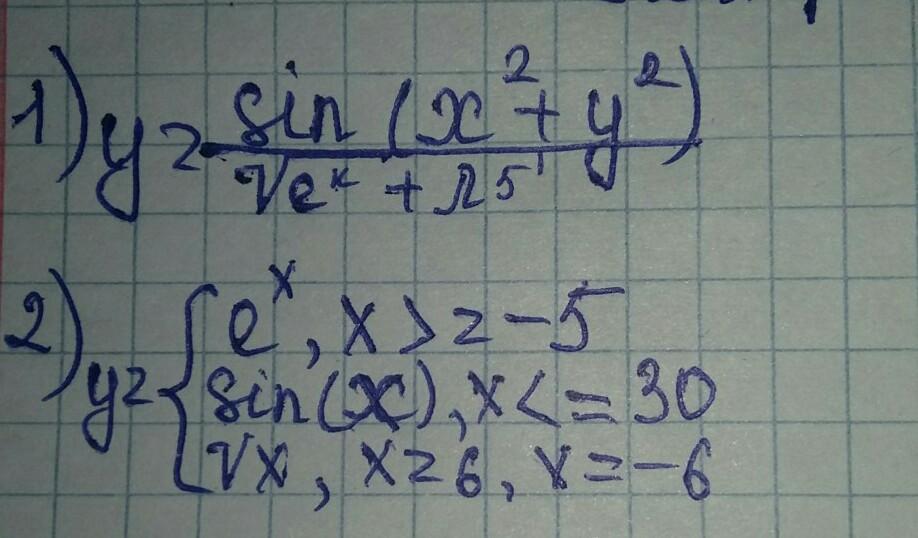 1) y = sin (x² + y²)
√e^x + 25
2) y = { e^x, x >= -5
sin(x), x <= 30
√x, x = 6, x = -6